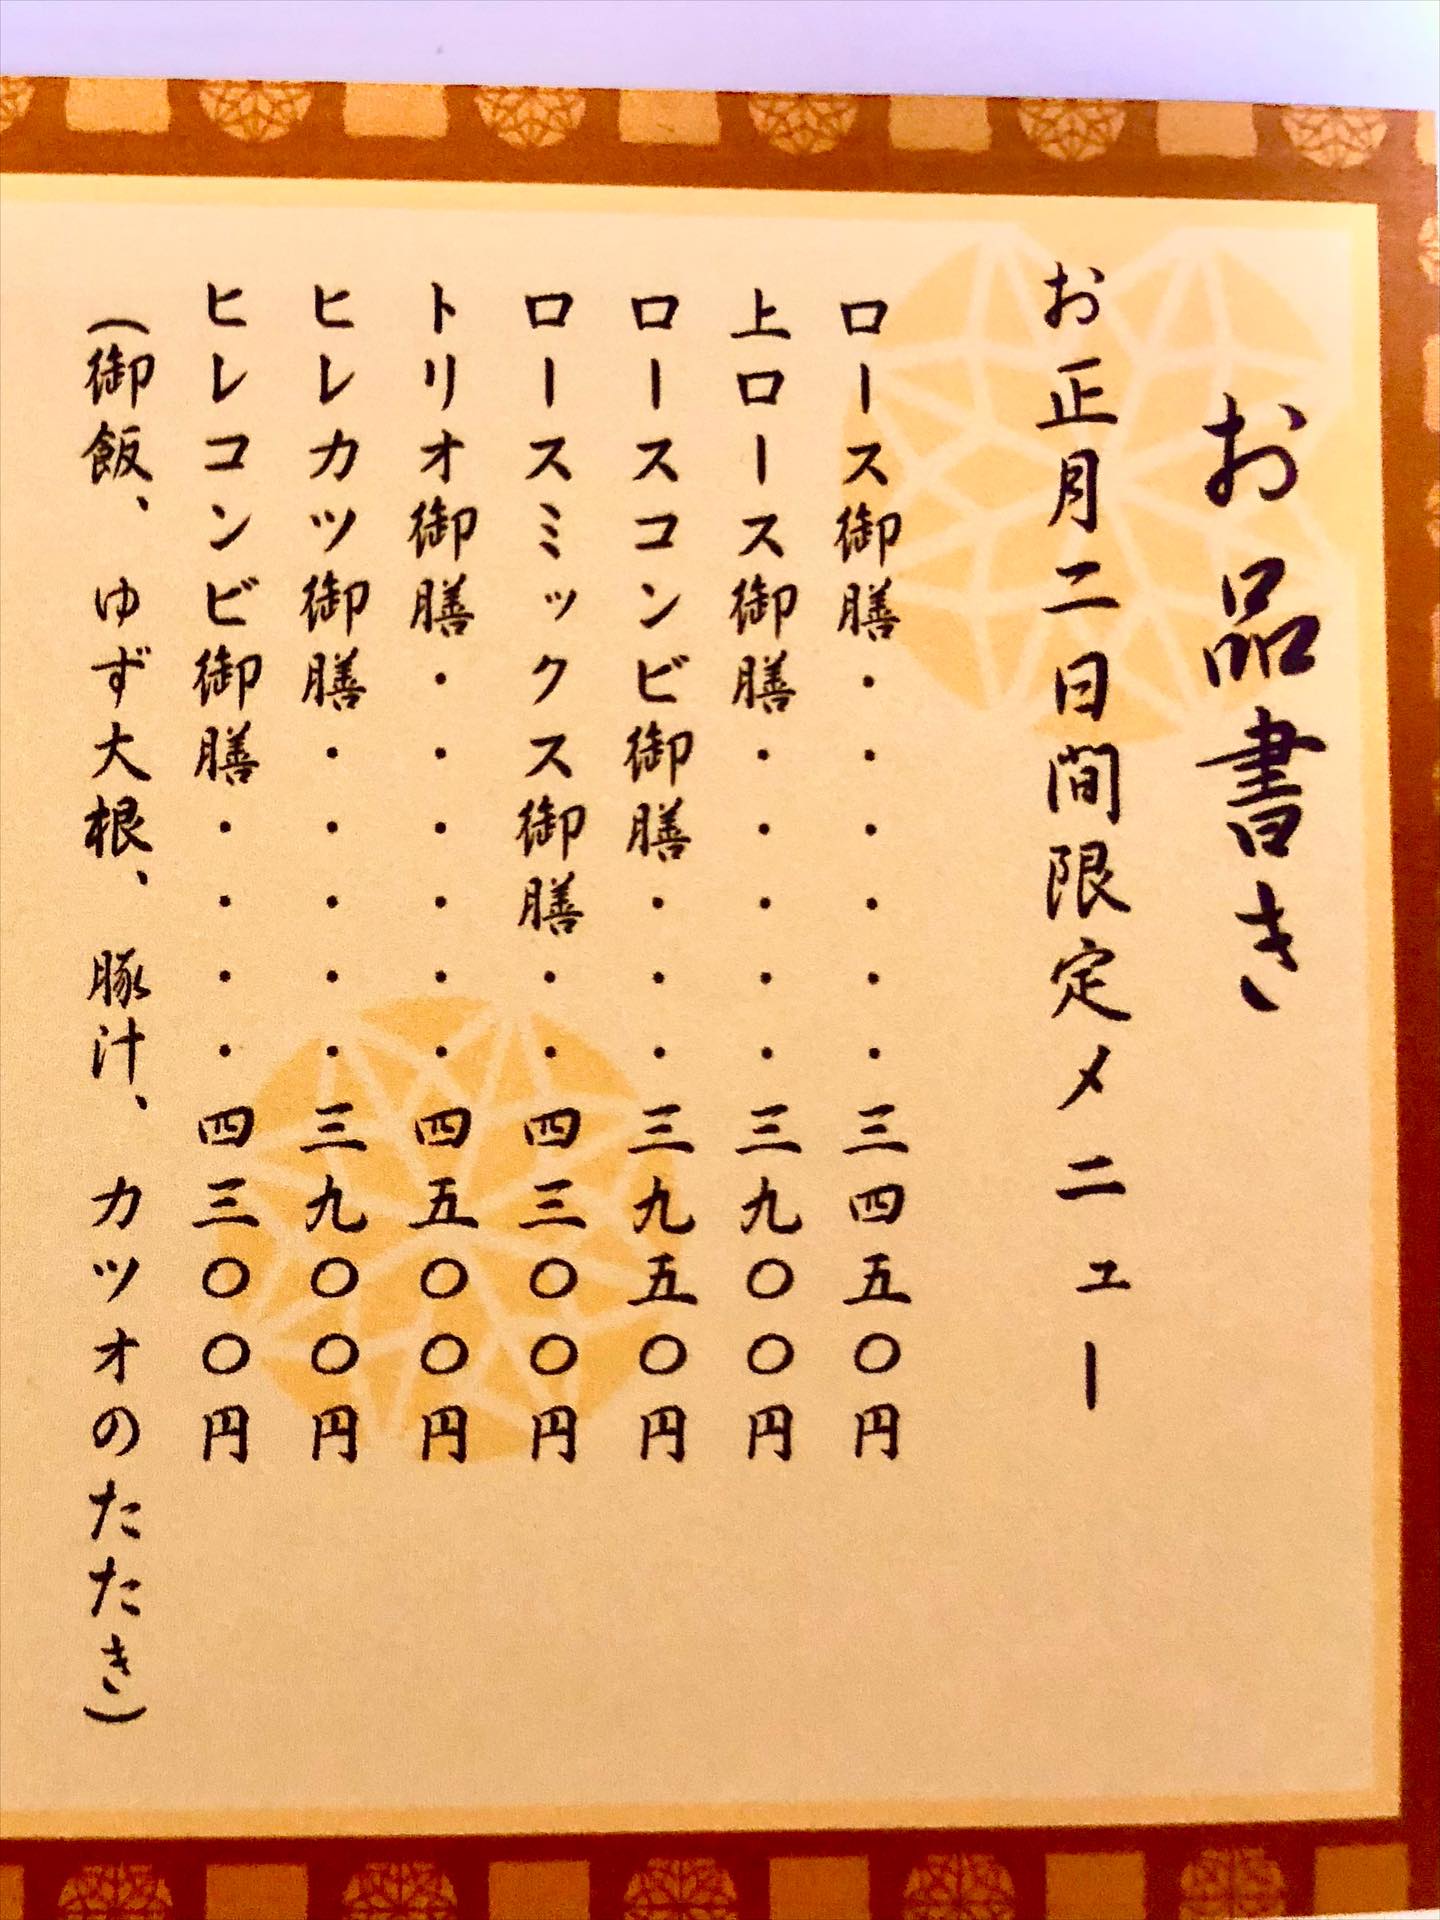 お品書き
お正月二日間限定メニュー
ロース御膳・・・・・・三四五〇円
上ロース御膳・・・・・三九〇〇円
ロースコンビ御膳・・・三九五〇円
ロースミックス御膳・・四三〇〇円
トリオ御膳・・・・・・四五〇〇円
ヒレカツ御膳・・・・・三九〇〇円
ヒレコンビ御膳・・・・四三〇〇円
(御飯、ゆず大根、豚汁、カツオのたたき)